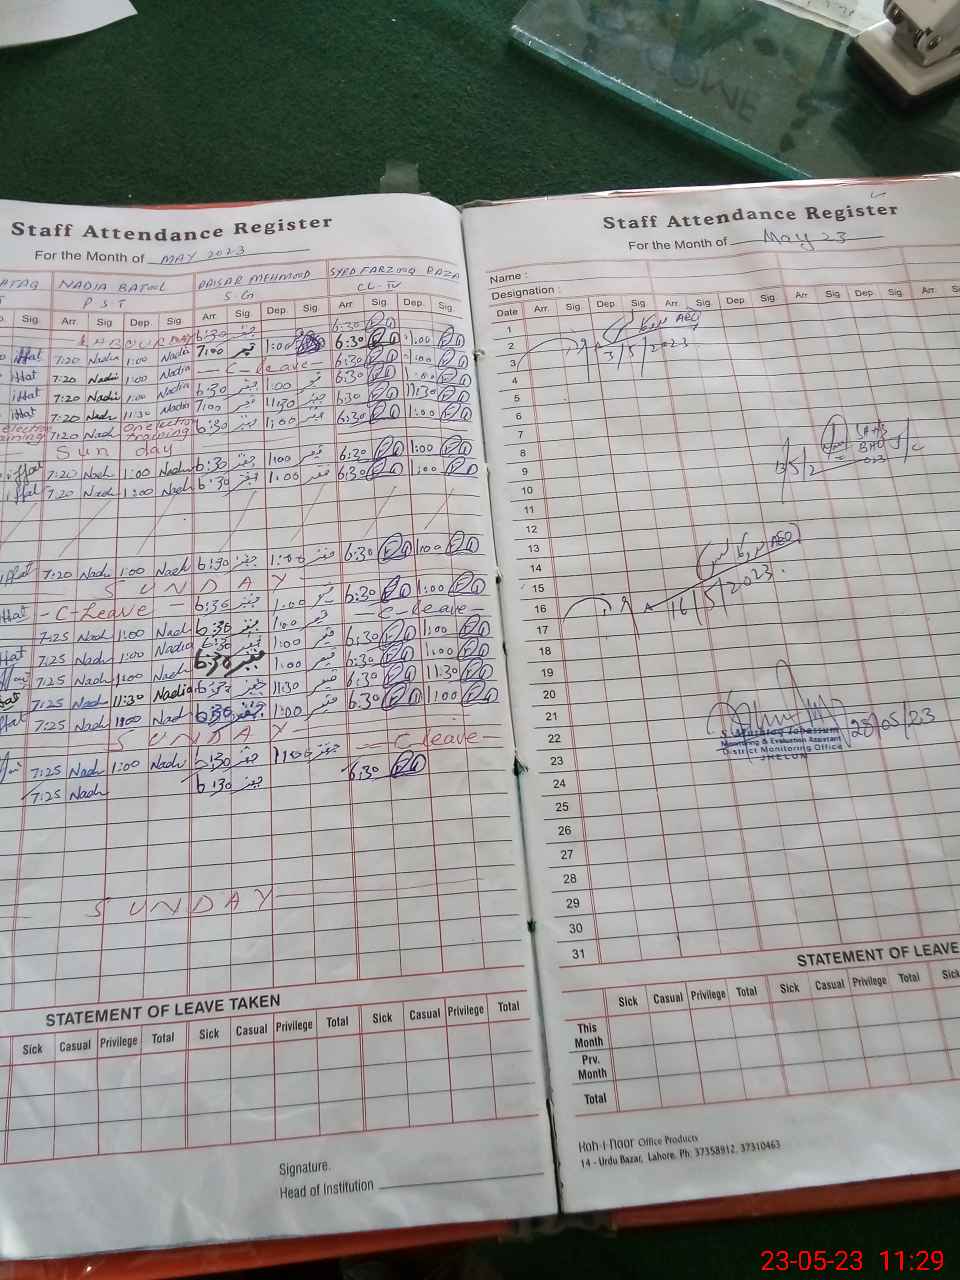 Staff Attendance Register
For the Month of MAY 2023
NADIA BATOOL
SYED FARZOOQ RAZA
P S T
S.G
CL-IV
Sig. Arr. Sig. Dep. Sig. Arr. Sig. Dep. Sig. Arr. Sig. Dep. Sig.
LABOUR DAY 6:30 6:30
iffat 7:20 Nadia 1:00 Nadia 7:00 1:00 6:30 1:00
iffat 7:20 Nadia 1:00 Nadia - C - leave - 6:30 1:00
iffat 7:20 Nadia 1:00 Nadia 6:30 1:00 6:30 1:00
iffat 7:20 Nadi 11:30 Nadia 7:00 11:30 6:30 11:30
election training 7:20 Nadi On election training 6:30 1:00 6:30 1:00
Sun day
iffat 7:20 Nadi 1:00 Nadi 6:30 1:00 6:30 1:00
iffat 7:20 Nadi 1:00 Nadi 6:30 1:00 6:30 1:00
iffat 7:20 Nadi 1:00 Nadi 6:30 1:00 6:30 1:00
SUNDAY
iffat - C-Leave - 6:30 1:00 6:30 1:00
7:25 Nadi 1:00 Nadi 6:30 1:00 - C-leave -
iffat 7:25 Nadi 1:00 Nadia 6:30 1:00 6:30 1:00
7:25 Nadi 1:00 Nadi 6:30 1:00 6:30 1:00
7:25 Nadi 11:30 Nadia 6:30 11:30 6:30 11:30
iffat 7:25 Nadi 1:00 Nadi 6:30 1:00 6:30 1:00
SUNDAY
7:25 Nadi 1:00 Nadi 6:30 1:00 - C leave -
7:25 Nadi 6:30 6:30
SUNDAY
STATEMENT OF LEAVE TAKEN
Sick Casual Privilege Total Sick Casual Privilege Total Sick Casual Privilege Total
Signature.
Head of Institution
Staff Attendance Register
For the Month of May 23
Name :
Designation :
Date Arr. Sig. Dep. Sig. Arr. Sig. Dep. Sig. Arr. Sig. Dep. Sig. Arr.
1
2 AEO
3 3/5/2023
4
5
6
7
8
9
10
11
12
13 AEO
14
15
16 16/5/2023
17
18
19
20
21
22 Monitoring & Evaluation Assistant
23 District Monitoring Office
JHELUM
23/05/23
24
25
26
27
28
29
30
31
STATEMENT OF LEAVE
Sick Casual Privilege Total Sick Casual Privilege Total Sick
This Month
Prv. Month
Total
Koh-i-Noor Office Products
14 - Urdu Bazar, Lahore. Ph. 37358912, 37310463
23-05-23 11:29